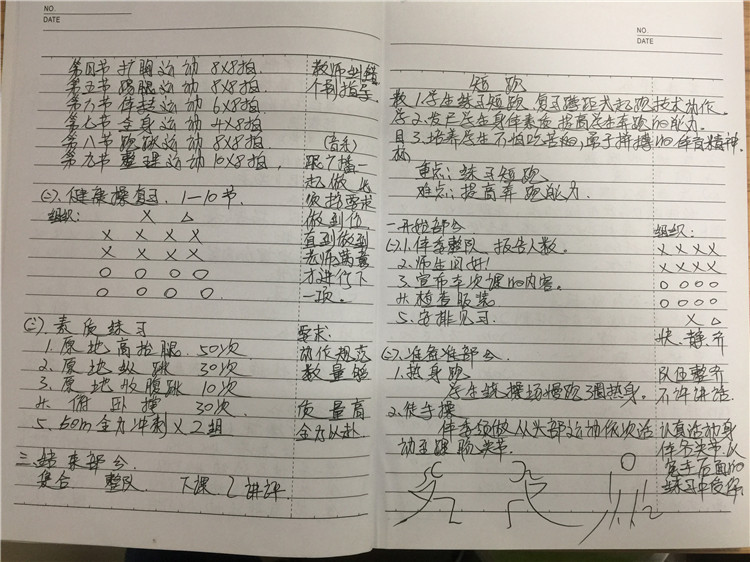 NO.
DATE
第四节 扩胸运动 8X8拍.
第五节 踢腿运动 8X8拍.
第六节 体转运动 6X8拍.
第七节 全身运动 4X8拍
第八节 跳跃运动 8X8拍.
第九节 整理运动 10X8拍.
教师纠错
个别指导
(音乐)
跟广播一
起做 6
次按要求
做到位
直到做到
老师满意
才进行下
一项。
(二).健康操复习. 1—10节.
组织:
X △
X X X X
X X X X
O O O O
O O O O
(三).素质练习
1.原地高抬腿. 50次
2.原地纵跳 30次
3.原地收腹跳 10次
4.俯卧撑 30次
5.50m全力冲刺X2组
要求:
动作规范
数量够
质量高
全力以赴
三.结束部分
集合 整队 下课 讲评
NO.
DATE
短跑
教 1.学生练习短跑 复习蹲距式起跑技术动作.
学 2.发展学生身体素质 提高学生奔跑的能力.
目 3.培养学生不怕吃苦的,勇于拼搏的体育精神.
标
重点:练习短跑
难点:提高奔跑能力.
一.开始部分
(一).1.体委整队 报告人数。
2.师生问好!
3.宣布本次课的内容。
4.检查服装
5.安排见习.
组织:
X X X X
X X X X
O O O O
O O O O
X △
快.静.齐
(二).准备部分.
1.热身跑
学生绕操场慢跑3圈热身。
2.徒手操
体委领做 从头部运动依次活
动至踝腕关节.
队伍整齐
不许讲话.
认真活动身
体各关节.以